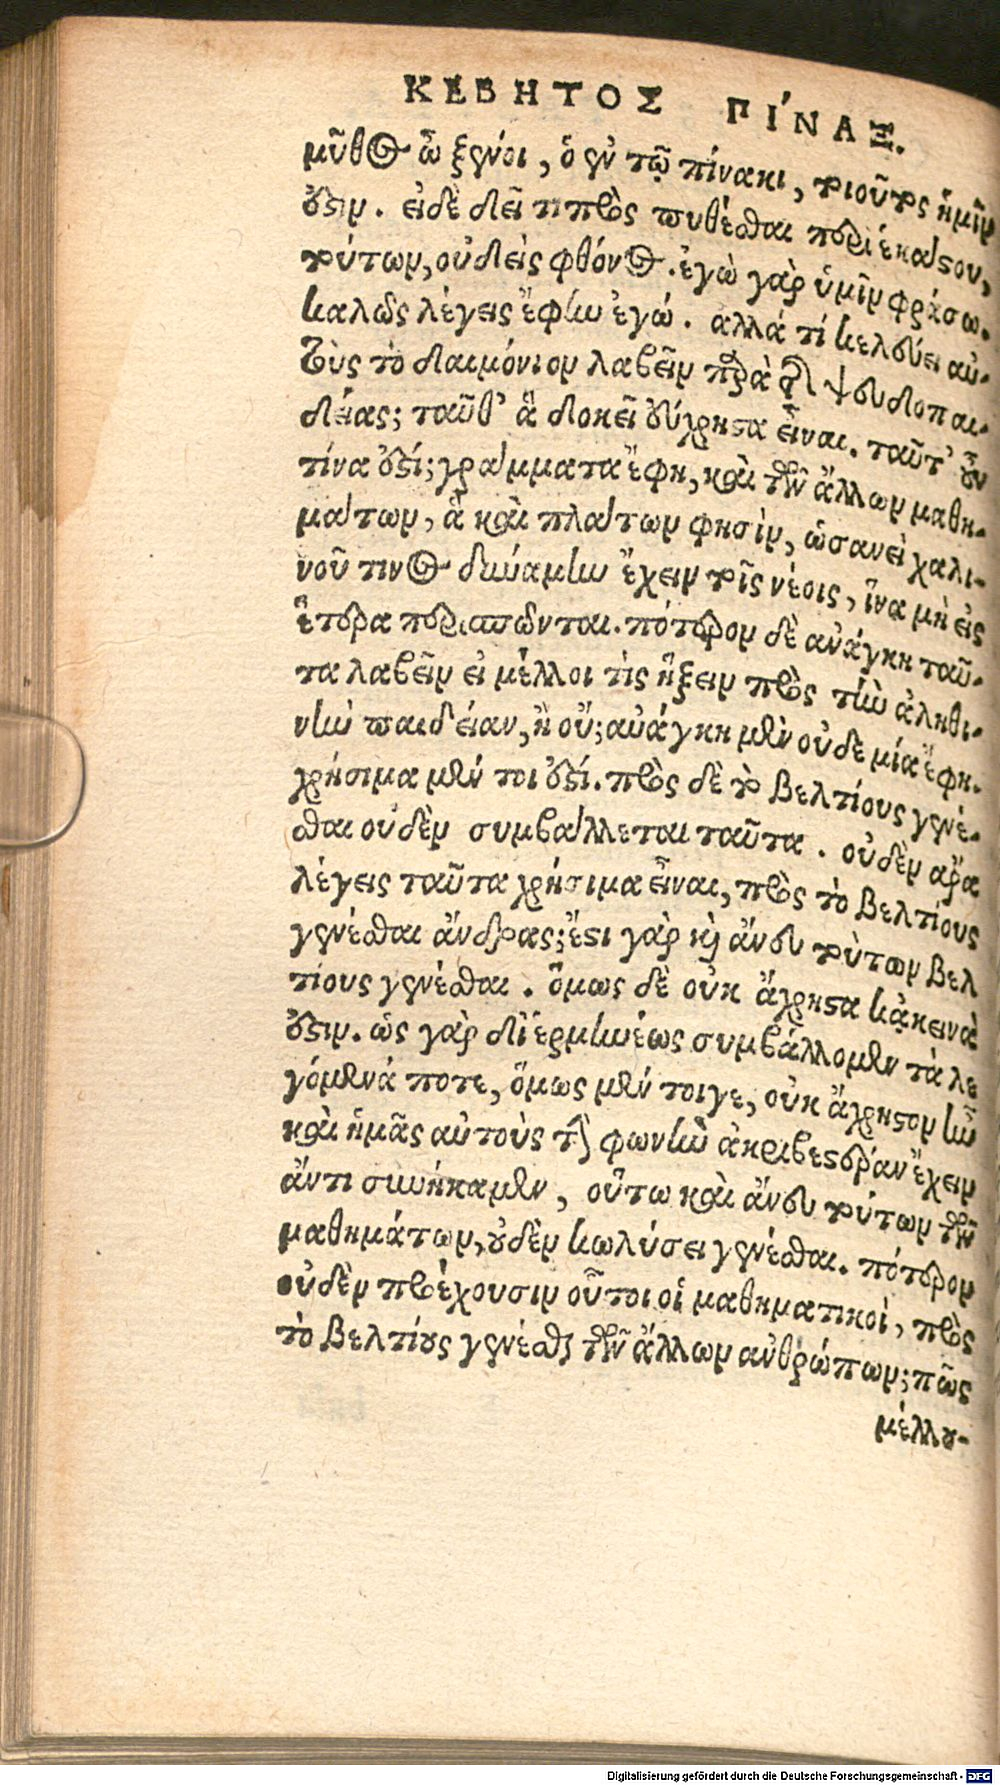 ΚΕΒΗΤΟΣ ΠΙ´ΝΑΞ.
μῦθος ὦ ξένοι, ὁ ἐν τῷ πίνακι, τοιοῦτος ἡμῖν
ἐστιν. εἰ δὲ δεῖ τι προσπυθέσθαι περὶ ἑκάστου,
τούτων, οὐδεὶς φθόνος. ἐγὼ γὰρ ὑμῖν φράσω.
καλῶς λέγεις ἔφην ἐγώ. ἀλλά τί κελεύει αὐ-
τοὺς τὸ δαιμόνιον λαβεῖν παρὰ τῆς ψευδοπαι-
δείας; ταῦθ' ἃ δοκεῖ εὔχρηστα εἶναι. ταῦτ' οὖν
τίνα ἐστί; γράμματα ἔφη, καὶ τῶν ἄλλων μαθη-
μάτων, ἃ καὶ πλάτων φησὶν, ὡσανεὶ χαλι-
νοῦ τινος δύναμιν ἔχειν τοῖς νέοις, ἵνα μὴ εἰς
ἕτερα περισπῶνται. πότερον δὲ ἀνάγκη ταῦ-
τα λαβεῖν εἰ μέλλοι τὶς ἥξειν πρὸς τὴν ἀληθι-
νὴν παιδείαν, ἢ οὔ; ἀνάγκη μὲν οὐδε μία ἔφη.
χρήσιμα μέν τοι ἐστί. πρὸς δὲ τὸ βελτίους γενέ-
σθαι οὐδὲν συμβάλλεται ταῦτα. οὐδὲν ἄρα
λέγεις ταῦτα χρήσιμα εἶναι, πρὸς τὸ βελτίους
γενέσθαι ἄνδρας; ἔστι γὰρ καὶ ἄνευ τούτων βελ
τίους γενέσθαι. ὅμως δὲ οὐκ ἄχρηστα κᾀκεινὰ
ἐστιν. ὡς γὰρ δι' ἑρμηνέως συμβάλλομεν τὰ λε
γόμενά ποτε, ὅμως μέν τοιγε, οὐκ ἄχρηστον ἦν
καὶ ἡμᾶς αὐτοὺς τὴν φωνὴν ἀκριβεστέραν ἔχειν
ἄντι συνήκαμεν, οὕτω καὶ ἄνευ τούτων τῶν
μαθημάτων, οὐδὲν κωλύσει γενέσθαι. πότερον
οὐδὲν προέχουσιν οὗτοι οἱ μαθηματικοὶ, πρὸς
τὸ βελτίους γενέσθαι τῶν ἄλλων ἀνθρώπων; πῶς
μέλλου-
Digitalisierung gefördert durch die Deutsche Forschungsgemeinschaft - DFG